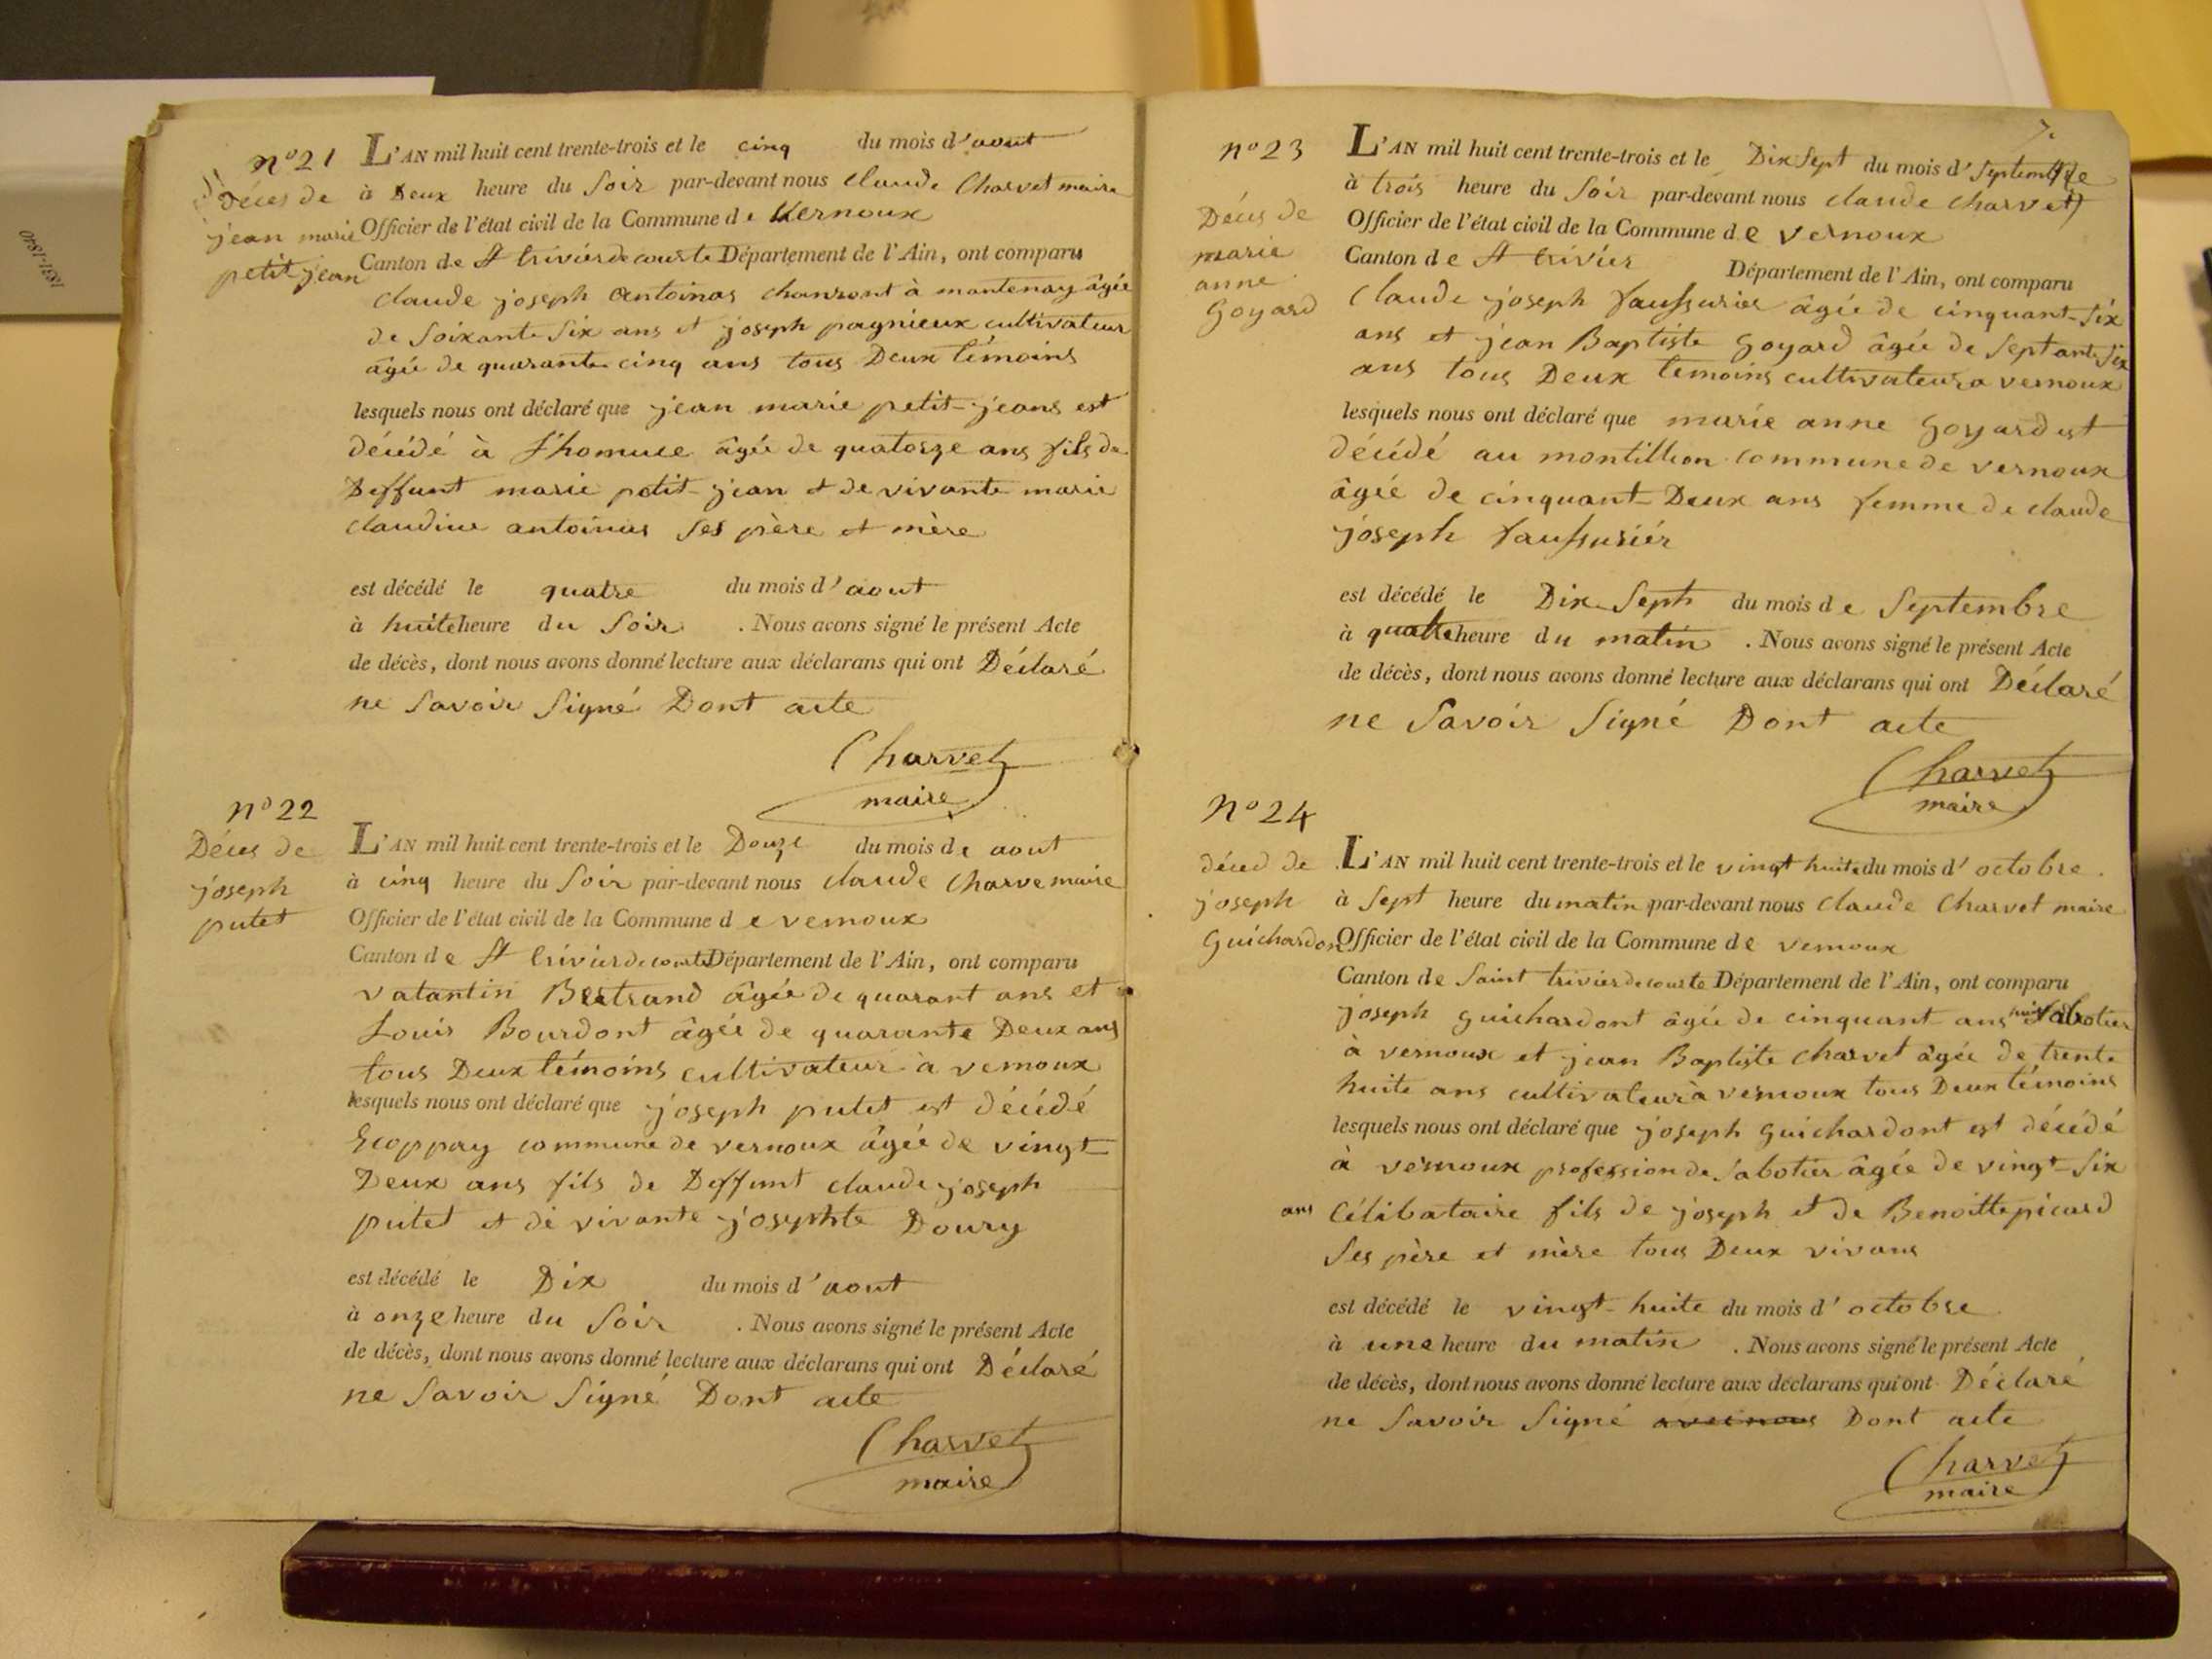 1831-1840
n° 21
Décès de
jean marie
petit jean
L'AN mil huit cent trente-trois et le cinq du mois d'aout
à Deux heure du Soir par-devant nous Claude Charvet maire
Officier de l'état civil de la Commune de Vernoux
Canton de St trivier de courte Département de l'Ain, ont comparu
claude joseph antoinas à mantenay âgée
de Soixante Six ans et joseph pagnieux cultivateur
âgée de quarante cinq ans tous Deux témoins
lesquels nous ont déclaré que jean marie petit-jeans est
décédé à âgée de quatorze ans fils de
Deffunt marie petit-jean et de vivante marie
claudine antoinas Ses père et mère
est décédé le quatre du mois d'aout
à huite heure du Soir . Nous avons signé le présent Acte
de décès, dont nous avons donné lecture aux déclarans qui ont Déclaré
ne Savoir Signé Dont acte
Charvet
maire
n° 22
Décès de
joseph
putet
L'AN mil huit cent trente-trois et le Douze du mois de aout
à cinq heure du Soir par-devant nous claude Charve maire
Officier de l'état civil de la Commune de vernoux
Canton de St trivier de courte Département de l'Ain, ont comparu
vatantin Bertrand âgée de quarant ans et
Louis Bourdont âgée de quarante Deux ans
tous Deux témoins cultivateur à vernoux
lesquels nous ont déclaré que joseph putet est décédé
Ecoppay commune de vernoux âgée de vingt
Deux ans fils de Deffunt claude joseph
putet et de vivante josephte Doury
est décédé le Dix du mois d'aout
à onze heure du Soir . Nous avons signé le présent Acte
de décès, dont nous avons donné lecture aux déclarans qui ont Déclaré
ne Savoir Signé Dont acte
Charvet
maire
7.
n° 23
Décès de
marie
anne
Goyard
L'AN mil huit cent trente-trois et le Dix Sept du mois d'Septembre
à trois heure du Soir par-devant nous claude Charvet
Officier de l'état civil de la Commune de vernoux
Canton de St trivier Département de l'Ain, ont comparu
Claude joseph faussurier âgée de cinquant-Six
ans et jean Baptiste Goyard âgée de Septante Six
ans tous Deux temoins cultivateur a vernoux
lesquels nous ont déclaré que marie anne Goyard est
décédé au montillion commune de vernoux
âgée de cinquant Deux ans femme de claude
joseph faussurier
est décédé le Dix Seph du mois de Septembre
à quatre heure du matin . Nous avons signé le présent Acte
de décès, dont nous avons donné lecture aux déclarans qui ont Déclaré
ne Savoir Signé Dont acte
Charvet
maire
n° 24
déced de
joseph
Guichardon
L'AN mil huit cent trente-trois et le vingt huite du mois d'octobre
à Sept heure du matin par-devant nous Claude Charvet maire
Officier de l'état civil de la Commune de vernoux
Canton de Saint trivier de courte Département de l'Ain, ont comparu
joseph guichardont âgée de cinquant ans huit Sabotier
à vernoux et jean Baptiste Charvet âgée de trente
huite ans cultivateur à vernoux tous Deux témoins
lesquels nous ont déclaré que joseph Guichardont est décédé
à vernoux profession de Sabotier âgée de vingt-Six
ans Célibataire fils de joseph et de Benoitte picard
Ses père et mère tous Deux vivans
est décédé le vingt-huite du mois d'octobre
à une heure du matin . Nous avons signé le présent Acte
de décès, dont nous avons donné lecture aux déclarans qui ont Déclaré
ne Savoir Signé avec nous Dont acte
Charvet
maire